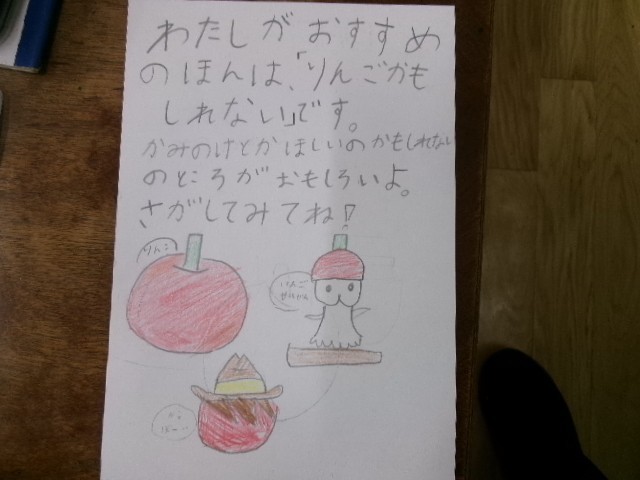 わたしがおすすめ
のほんは、「りんごかも
しれない」です。
かみのけとかほしいのかもしれない
のところがおもしろいよ。
さがしてみてね!
りんご